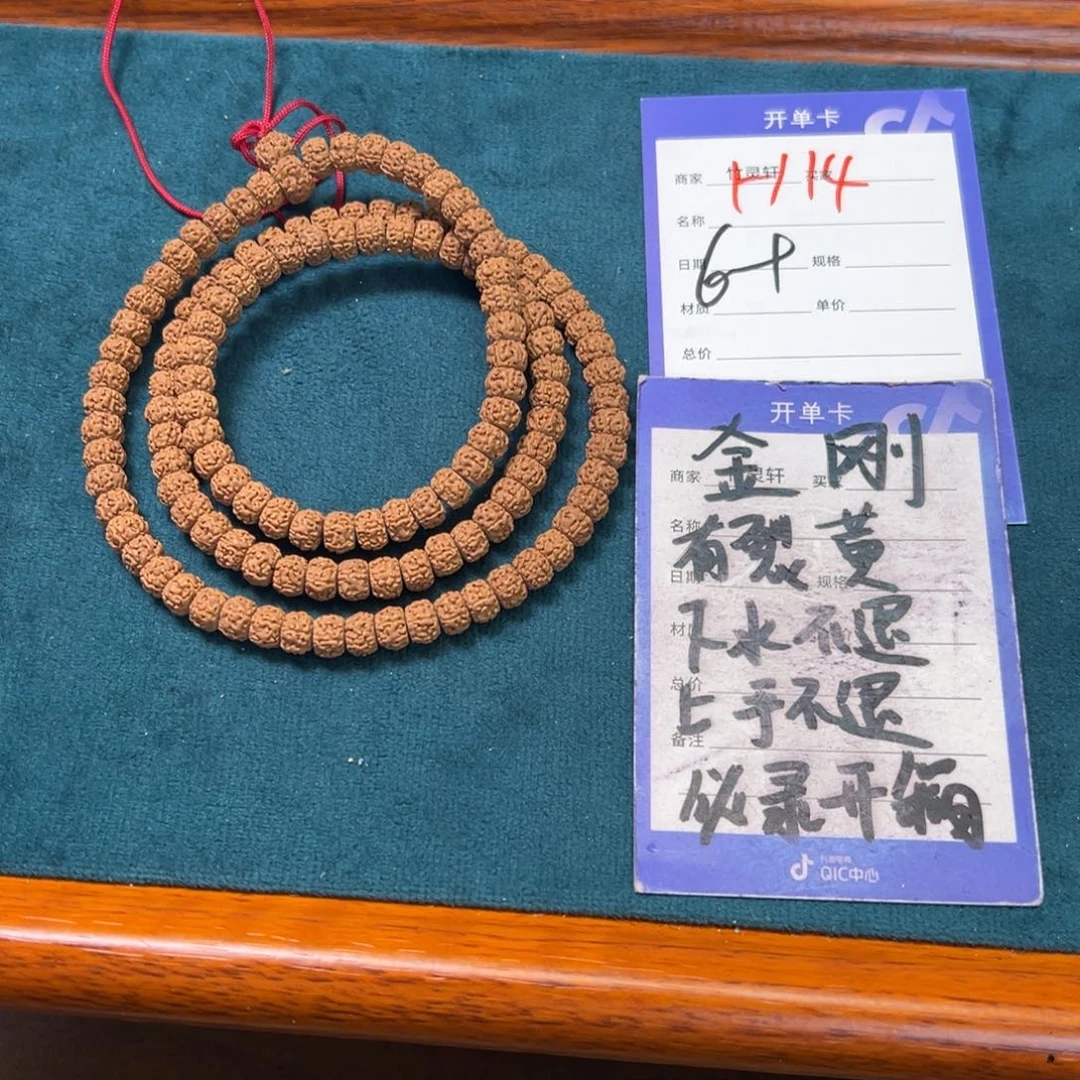 开单卡
商家 竹灵轩 买家
H14
名称
日期 规格
6+
材质 单价
总价
开单卡
商家 灵轩 买
金刚
名称
有裂黄
日期 规格
下水不退
材质
总价
上手不退
备注
必录开箱
抖音电商
QIC中心